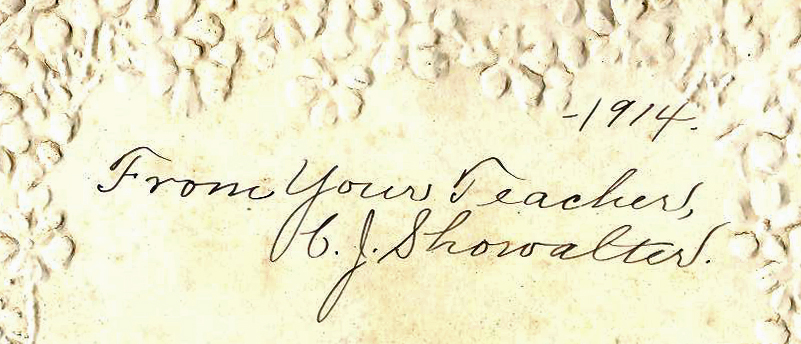 -1914.
From Your Teacher,
C. J. Showalter.